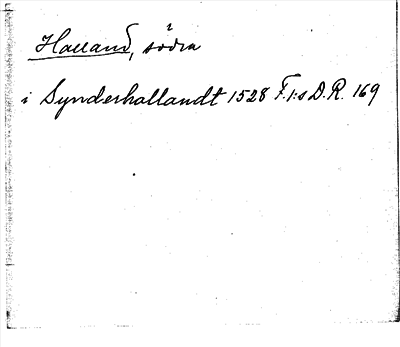 Halland, södra
i Synderhallandt 1528 F.I:s D.R. 169